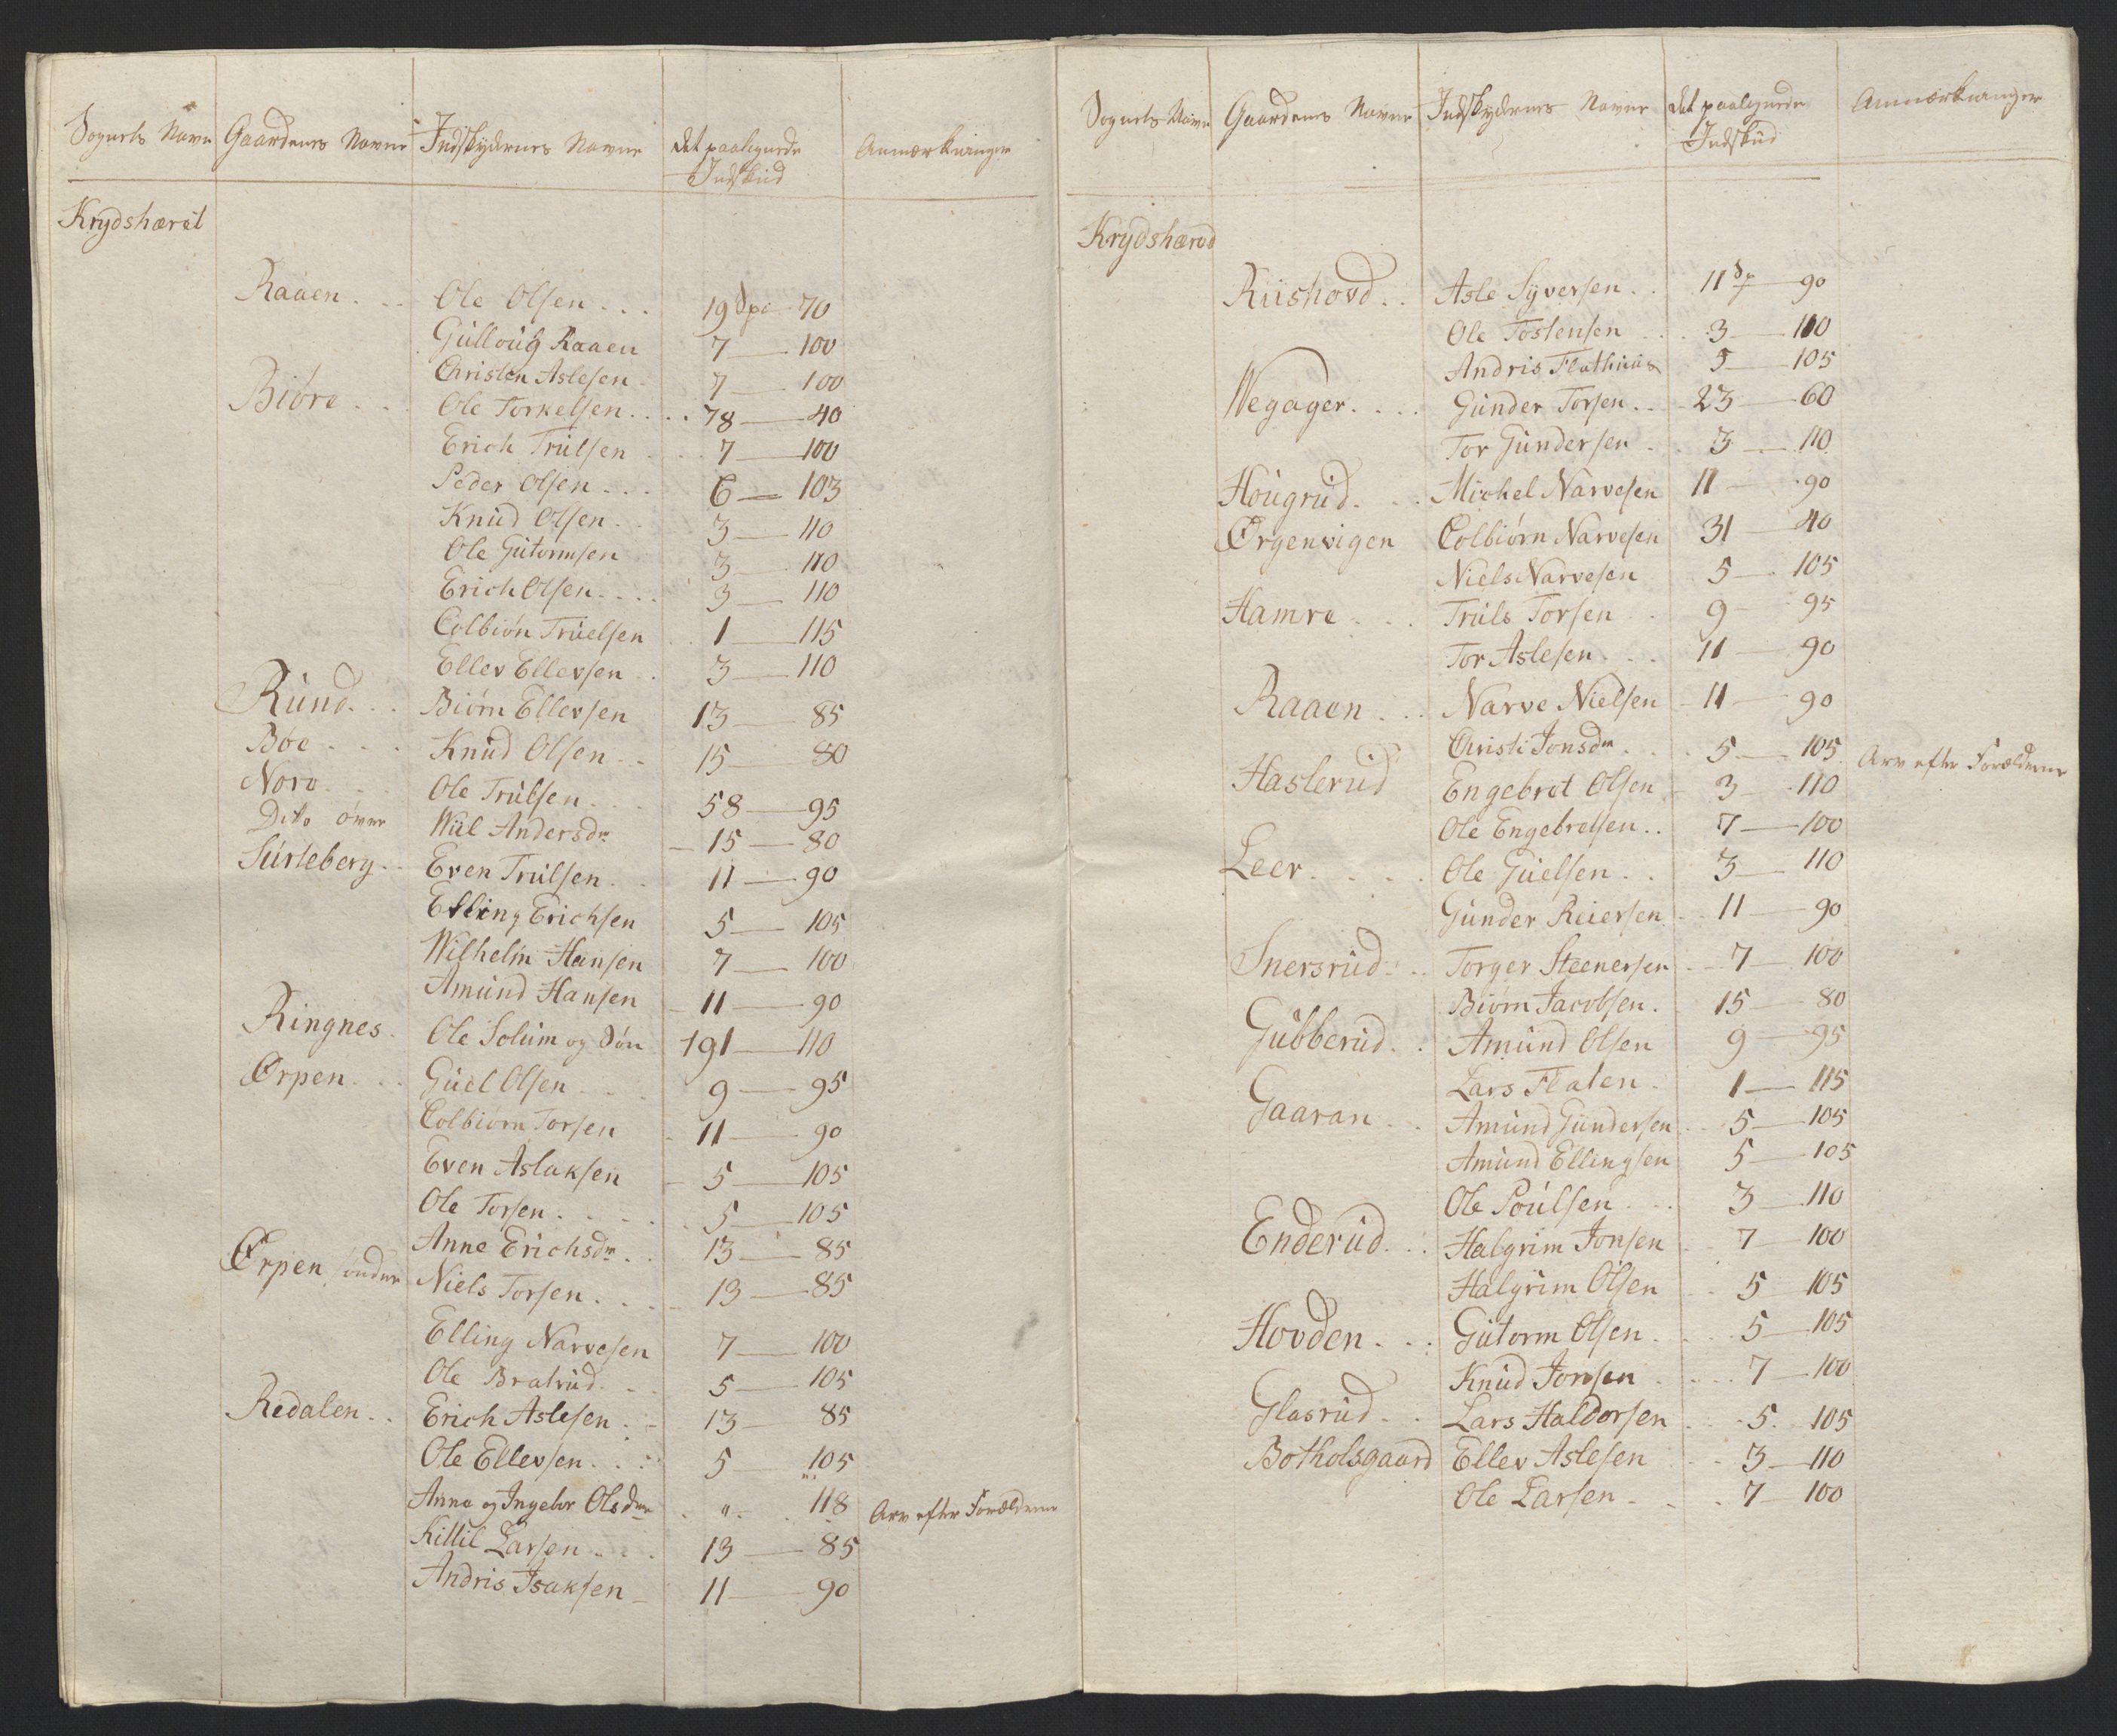 Sognets Navn Gaardenes Navne Indskydernes Navne det paalignede Anmærkninger
Indskud
Krydshæret
Raaen . . Ole Olsen . . . 19 Spe 70
Gulloug Raaen 7 — 100
Christen Aslesen . 7 — 100
Biøre . . . Ole Torkelsen . . . . 78 — 40
Erich Trulsen . . . 7 — 100
Peder Olsen . . . 6 — 103
Knud Olsen . . 3 — 110
Ole Gutormsen 3 — 110
Erich Olsen . . . . 3 — 110
Colbiøn Truelsen . . 1 — 115
Ellev Ellevsen . . 3 — 110
Rund . . . Biørn Ellevsen 13 — 85
Bøe . . . Knud Olsen . . 15 — 80
Nore . . . Ole Trulsen . . . 58 — 95
Dito øvre Wiil Andersdr — 15 — 80
Surteberg . . Even Trulsen . . 11 — 90
Elling Erichsen 5 — 105
Wilhelm Hansen 7 — 100
Amund Hansen — 11 — 90
Ringnes . Ole Solum og Søn 191 — 110
Ørpen . . . Guel Olsen . . . 9 — 95
Colbiørn Torsen - 11 — 90
Even Aslaksen — 5 — 105
Ole Torsen . . . . . 5 — 105
Anne Erichsdr . . 13 — 85
Ørpen øndre Niels Torsen . . . — 13 — 85
Elling Narvesen 7 — 100
Ole Bratrud . . . 5 — 105
Redalen . . Erich Aslesen . - 13 — 85
Ole Ellevsen . . . 5 — 105
Anne og Ingebor Olsdr . " . . 118 Arv efter Forældrene
Kittil Larsen . . . 13 — 85
Andris Isaksen — 11 — 90
Sognets Navn Gaardenes Navne Indskydernes Navne det paalignede Anmærkninger
Indskud
Krydshærad
Riishovd . . Asle Syversen . . 11 Sp — 90
Ole Tostensen . . . 3 — 110
Andris Flathuus 5 — 105
Wegager . . . . Gunder Torsen . . 23 — 60
Tor Gundersen . . 3 — 110
Hougrud . . . Michel Narvesen 11 — 90
Ørgenvigen Colbiørn Narvesen 31 — 40
Niels Narvesen 5 — 105
Hamre . . . Truls Torsen . . 9 95
Tor Aslesen . . . 11 — 90
Raaen . . . Narve Nielsen - 11 — 90
Christi Jonsdr . . . 5 — 105 Arv efter Forældrene
Haslerud Engebret Olsen - 3 — 110
Ole Engebretsen . . 7 — 100
Leer . . . . Ole Guelsen . . 3 — 110
Gunder Reiersen . . 11 — 90
Snersrud . . . Torger Steenersen . — 7 — 100
Biørn Jacobsen . 15 — 80
Gubberud . . Amund Olsen 9 — 95
Lars Flaten . 1 — 115
Gaaran . . Amund Gundersen . . 5 — 105
Amund Ellingsen 5 — 105
Ole Poulsen . . . 3 — 110
Enderud . . . Halgrim Jonsen . . 7 — 100
Halgrim Olsen . . 5 105
Hovden . . . Gutorm Olsen . . . . 5 — 105
Knud Jonsen . . . . 7 — 100
Glasrud . . Lars Haldorsen . . . 5 . 105
Botholsgaard Ellev Aslesen . . . 3 — 110
Ole Larsen . . . 7 — 100